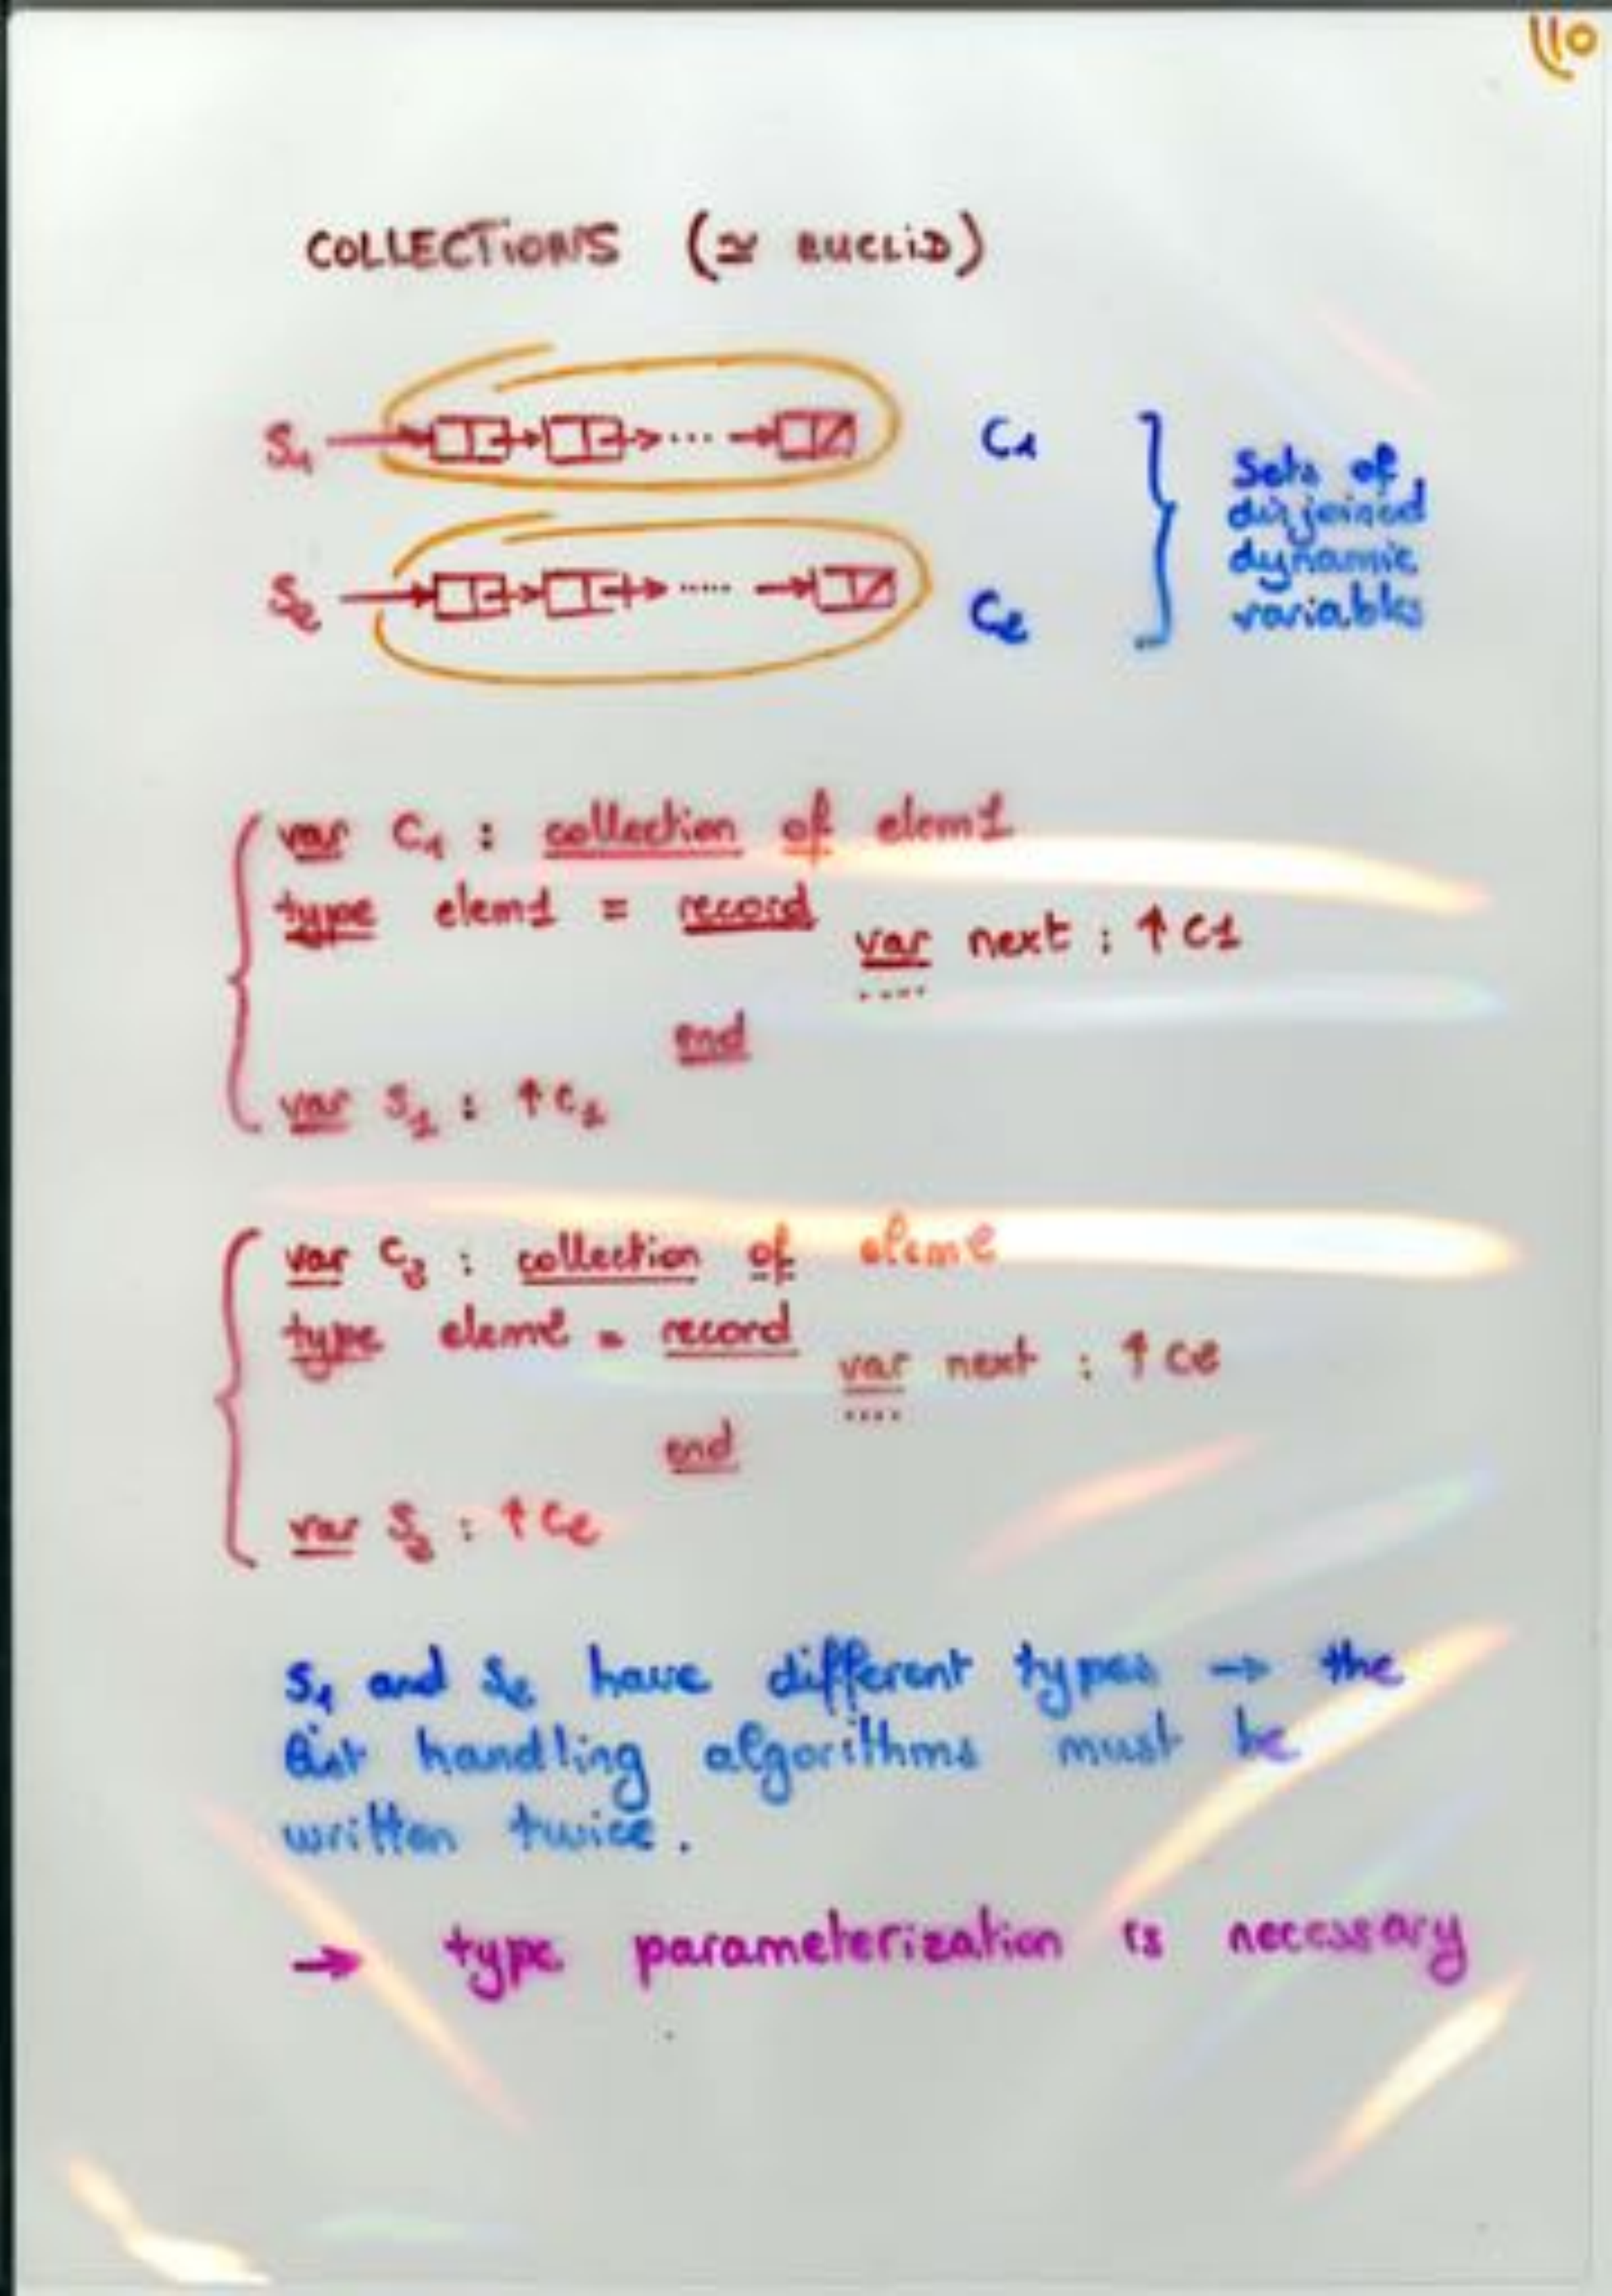 110
COLLECTIONS (≃ EUCLID)
S1 C1
S2 C2
Sets of
disjoined
dynamic
variables
var C1 : collection of elem1
type elem1 = record
var next : ↑C1
....
end
var S1 : ↑C1
var C2 : collection of elem2
type elem2 = record
var next : ↑C2
....
end
var S2 : ↑C2
S1 and S2 have different types → the
list handling algorithms must be
written twice.
→ type parameterization is necessary